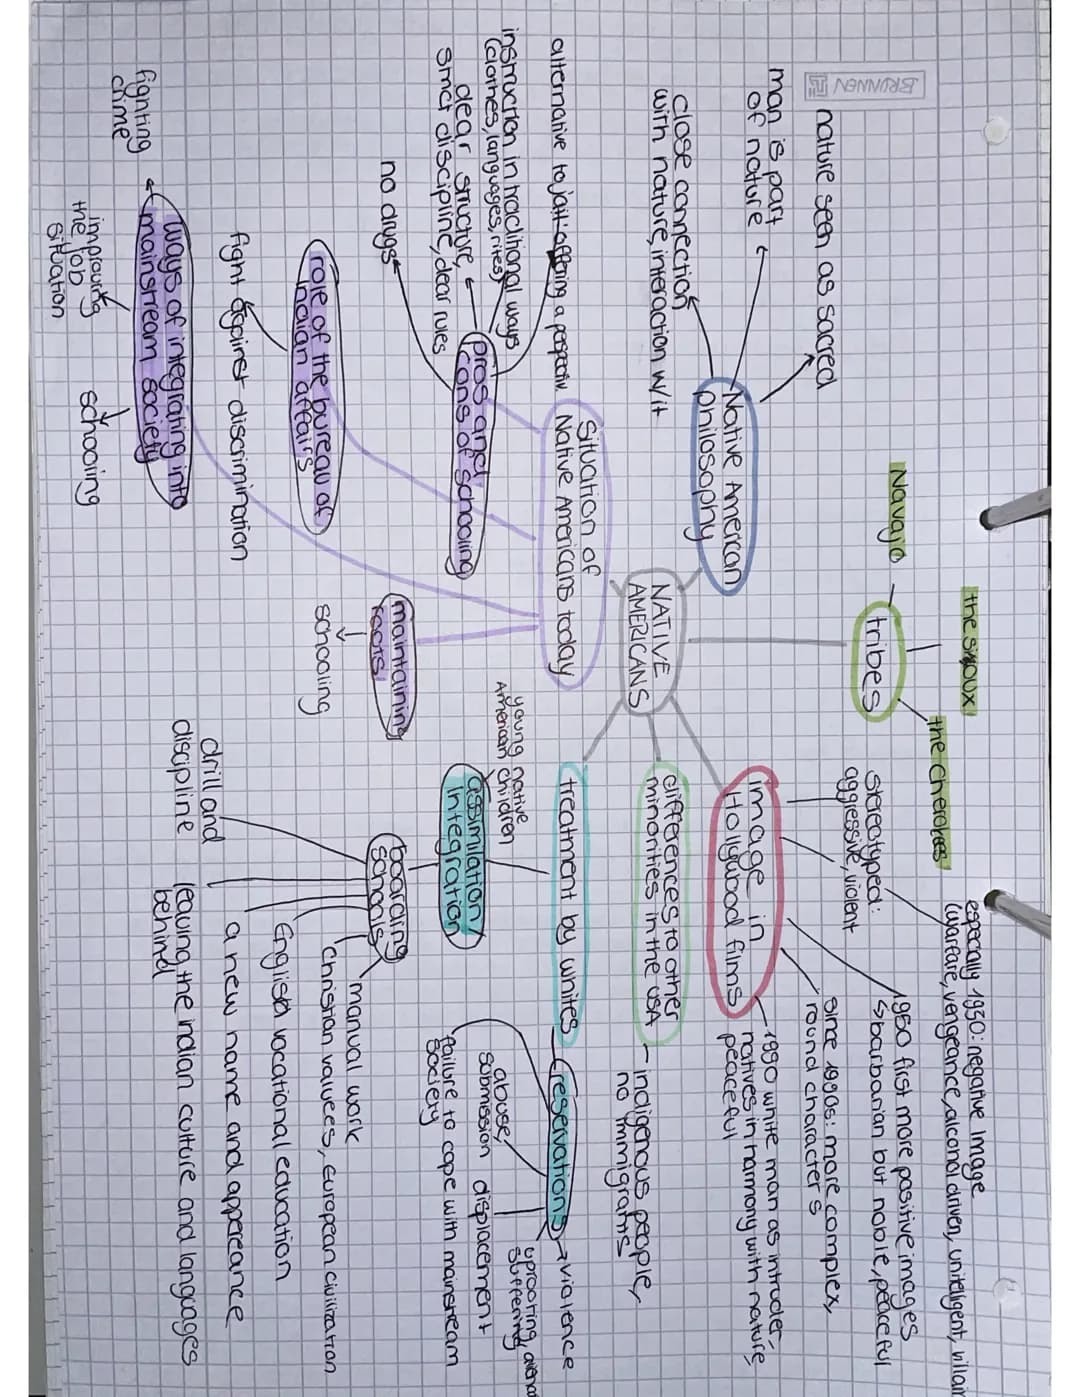 BRUNNEN
nature seen as sacred
man is part
of nature
close connection
with nature, interaction w/it
Native American
philosophy
Navajo
tribes
the sioux
the cherokees
NATIVE
AMERICANS
image in
Hollywood films
stereotyped:
aggressive, violent
especially 1930: negative image
(warfare, vengeance, alcohol driven, unitelligent, villain
1950 first more positive images
↳ barbarian but noble, peaceful
since 1990s: more complex,
round characters
1990 white man as intruder,
natives in harmony with nature,
peaceful
differences to other
minorities in the USA
indigenous people,
no immigrants
treatment by whites
reservations
violence
uprooting,
suffering
displacement
abuse,
submission
failure to cope with mainstream
society
assimilation/
integration
young native
American children
boarding
schools
manual work
Christian values, european civilization
English vocational education
a new name and appereance
leaving the indian culture and languages
behind
drill and
discipline
Situation of
Native Americans today
pros and
cons of schooling
alternative to jail: offering a perspectiv
instruction in traditional ways
(clothes, languages, rites)
clear structure,
strict discipline, clear rules
no drugs
role of the bureau of
indian affairs
fight against discrimination
maintaining
roots
schooling
ways of integrating into
mainstream society
fighting
crime
improving
the job
situation
schooling